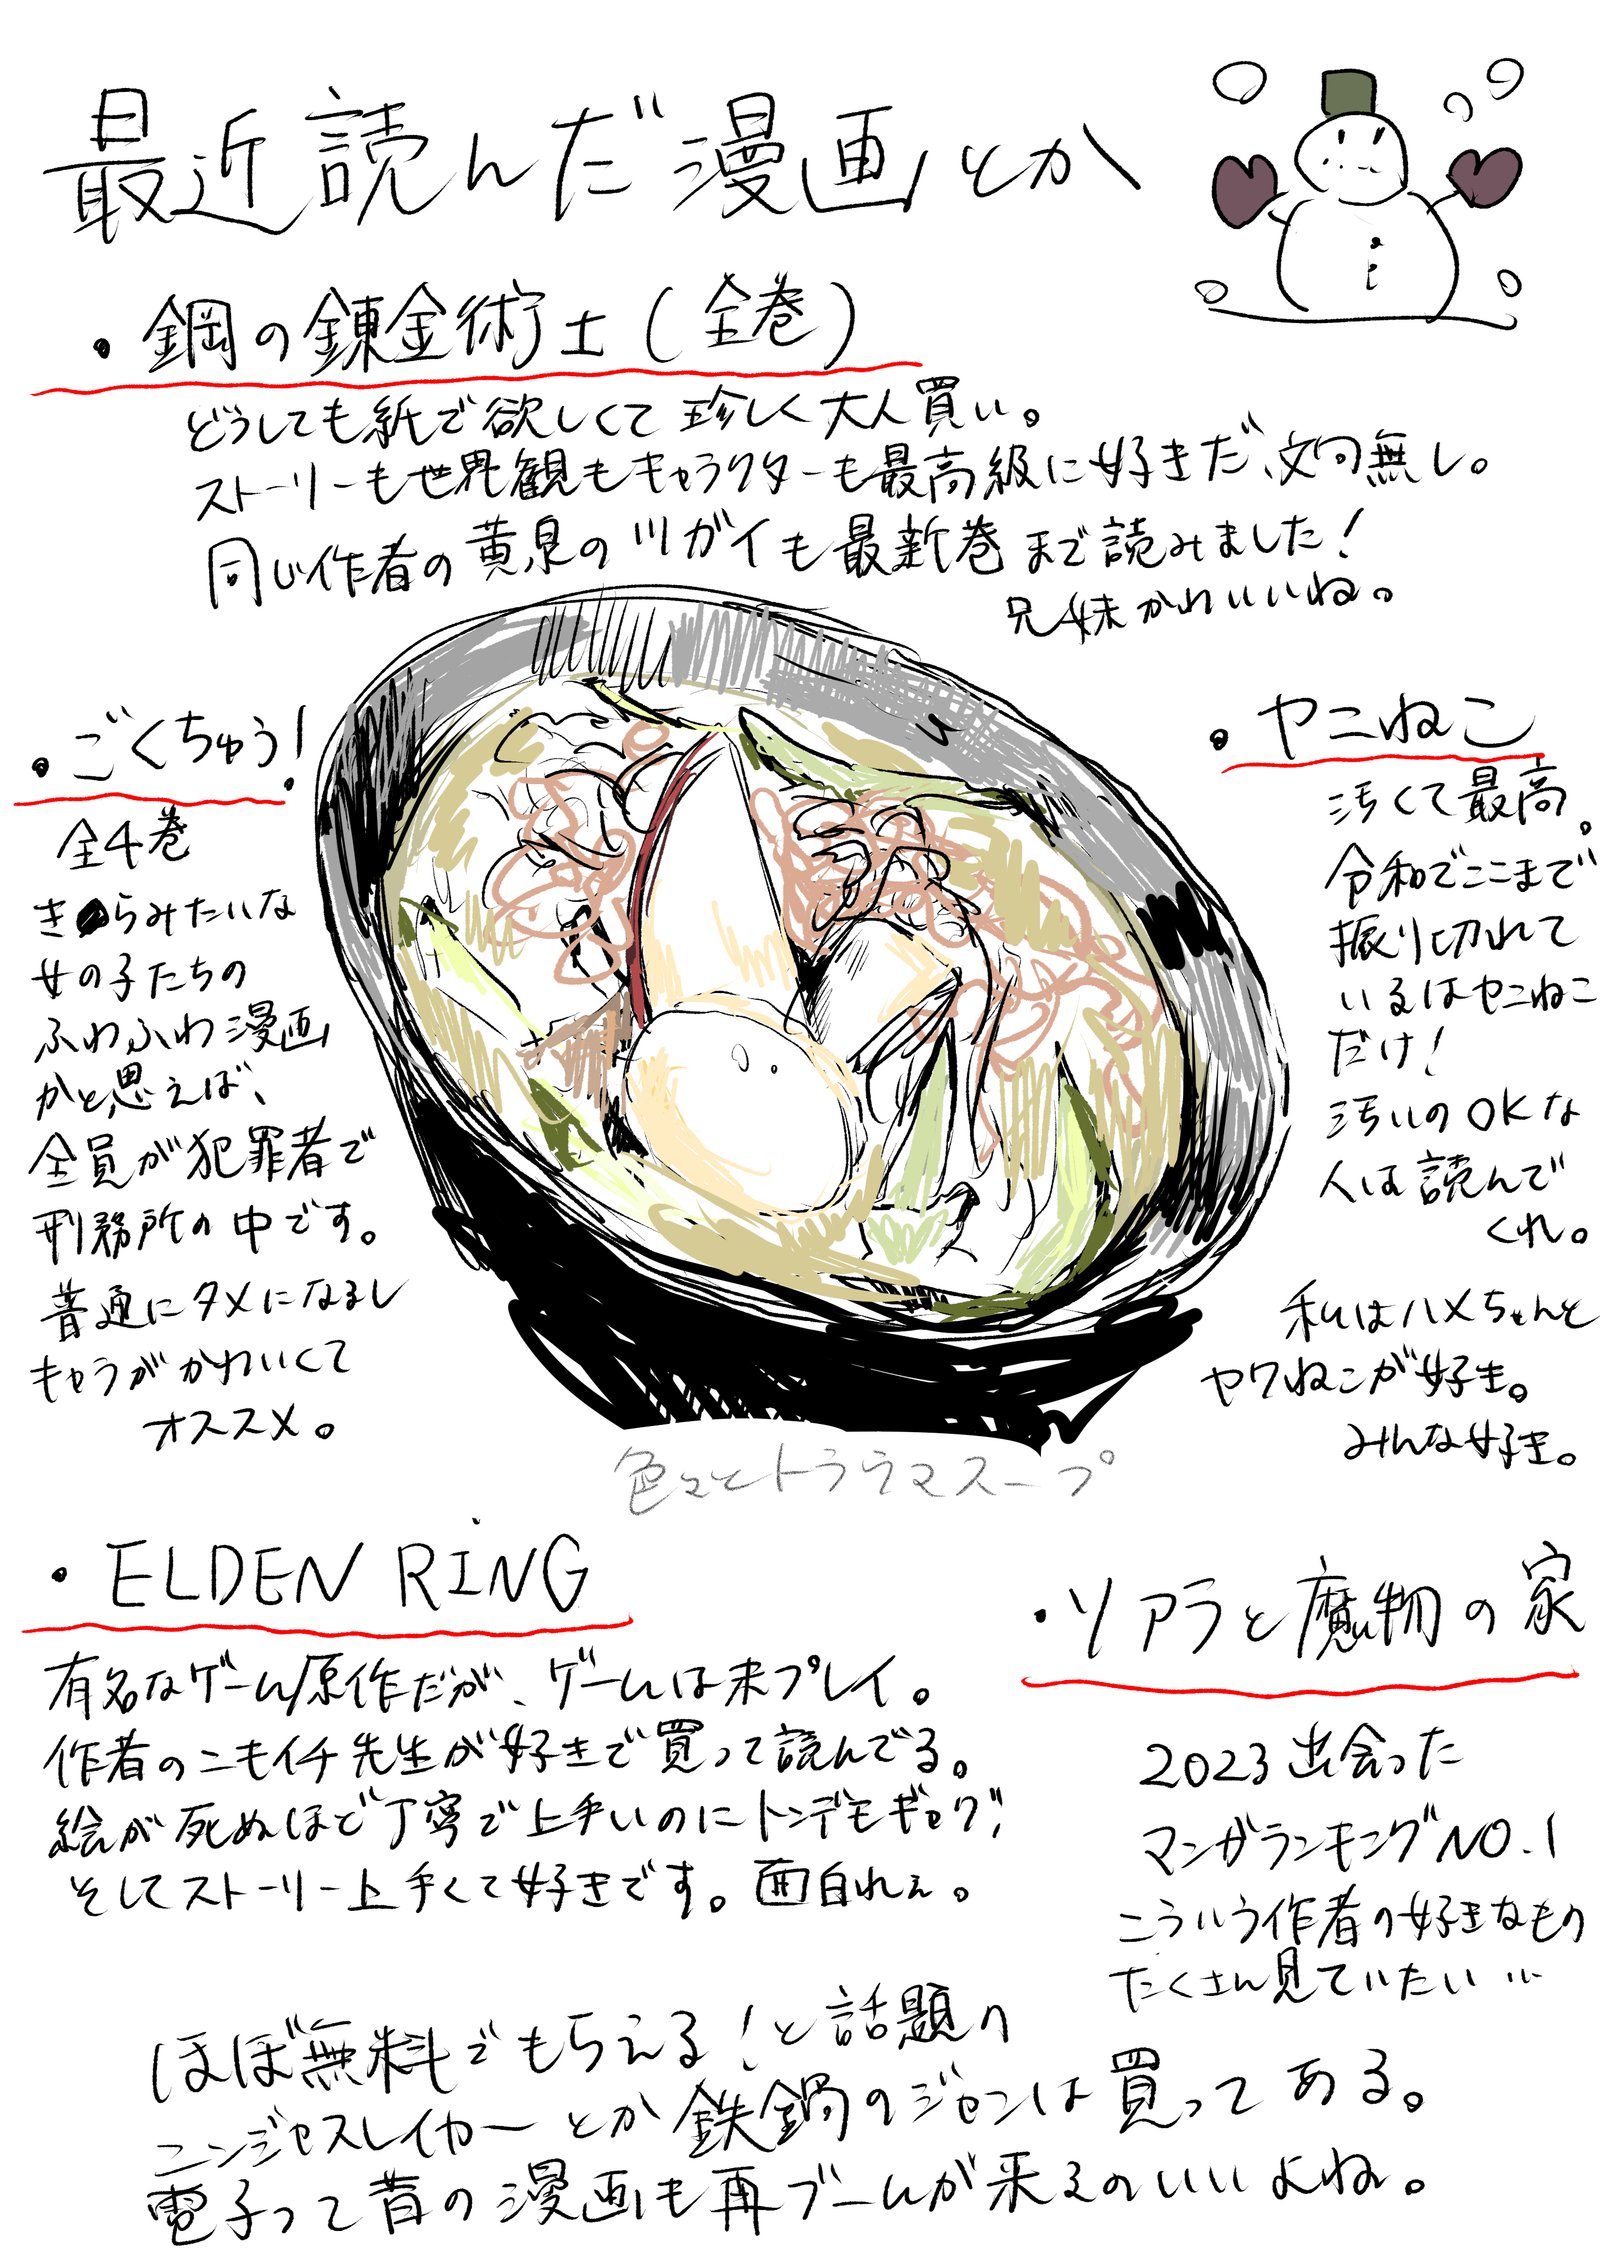 最近読んだ漫画とか
・鋼の錬金術士(全巻)
どうしても紙で欲しくて珍しく大人買い。
ストーリーも世界観もキャラクターも最高級に好きだ、文句無し。
同じ作者の黄泉のツガイも最新巻まで読みました!
兄妹かわいいね。
・ごくちゅう!
全4巻
き●らみたいな
女の子たちの
ふわふわ漫画
かと思えば、
全員が犯罪者で
刑務所の中です。
普通にタメになるし
キャラがかわいくて
オススメ。
・ヤニねこ
汚くて最高。
令和でここまで
振り切れて
いるはヤニねこ
だけ!
汚いのOKな
人は読んで
くれ。
私はハメちゃんと
ヤワねこが好き。
みんな好き。
色々とトラウマスープ
・ELDEN RING
有名なゲーム原作だが、ゲームは未プレイ。
作者のニモイチ先生が好きで買って読んでる。
絵が死ぬほど丁寧で上手いのにトンデモギャグ、
そしてストーリー上手くて好きです。面白れぇ。
・ソアラと魔物の家
2023出会った
マンガランキングNO.1
こういう作者の好きなもの
たくさん見ていたい…
ほぼ無料でもらえる!と話題の
ニンジャスレイヤーとか鉄鍋のジャンは買ってある。
電子って昔の漫画も再ブームが来るのいいよね。